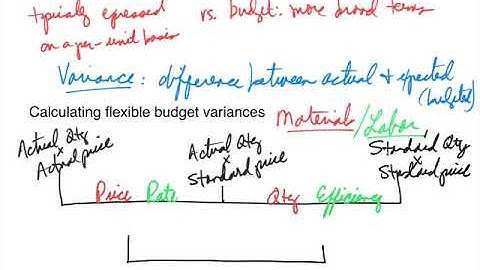 typically expressed vs. budget: more broad terms
on a per-unit basis
Variance: difference between actual & expected
(budgeted)
Calculating flexible budget variances
Material/Labor
Actual Qty
x
Actual price
Actual Qty
x
Standard price
Standard Qty
x
Standard price
Price Rate
Qty Efficiency